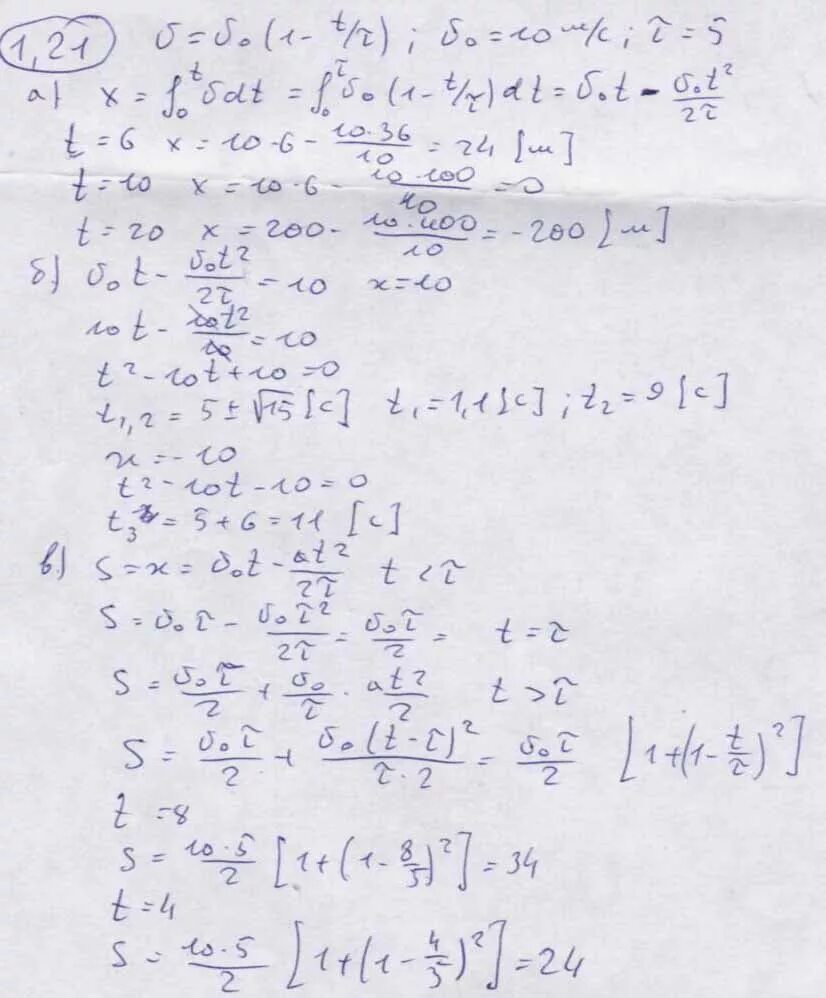 1,21 υ = υ₀ (1 - t/τ) ; υ₀ = 10 м/с ; τ = 5
а) x = ∫₀ᵗ υdt = ∫₀^τ υ₀ (1 - t/τ) dt = υ₀t - υ₀t²/2τ
t = 6 x = 10 · 6 - 10·36/10 = 24 [м]
t = 10 x = 10 · 6 - 10·100/10 = 0
t = 20 x = 200 - 10·400/10 = -200 [м]
б) υ₀t - υ₀t²/2τ = 10 x = 10
10t - 10t²/10 = 10
t² - 10t + 10 = 0
t₁,₂ = 5 ± √15 [с] t₁ = 1,1 [с] ; t₂ = 9 [с]
x = -10
t² - 10t - 10 = 0
t₃ = 5 + 6 = 11 [с]
в) S = x = υ₀t - at²/2τ t < τ
S = υ₀τ - υ₀τ²/2τ = υ₀τ/2 = t = τ
S = υ₀τ/2 + υ₀/τ · at²/2 t > τ
S = υ₀τ/2 + υ₀(t - τ)²/τ·2 = υ₀τ/2 [1 + (1 - t/τ)²]
t = 8
S = 10·5/2 [1 + (1 - 8/5)²] = 34
t = 4
S = 10·5/2 [1 + (1 - 4/5)²] = 24